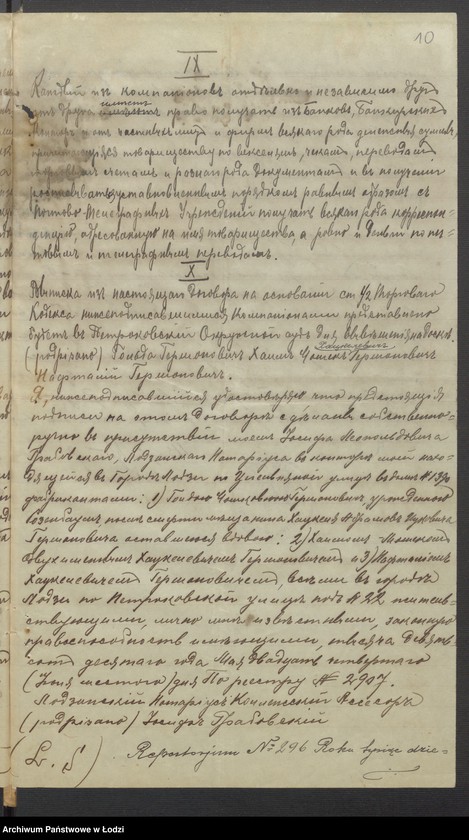 10
IX
Каждый изъ компаніоновъ отдѣльно и независимо другъ
отъ друга имѣетъ право получать изъ Банковъ, Банкирскихъ
Конторъ отъ частныхъ лицъ и фирмъ всякаго рода денежныя суммы,
причитающіяся товариществу по векселямъ, чекамъ, переводамъ
счетамъ и разнаго рода документамъ и въ полученіи
установленнымъ порядкомъ равнымъ образомъ съ
Почтово Телеграфныхъ Учрежденій получать всякаго рода корреспон-
денцію, адресованную на имя товарищества а ровно и деньги по поч-
товымъ и телеграфнымъ переводамъ.
X
Выписка изъ настоящаго договора на основаніи ст. 42 Торговаго
Кодекса нижеподписавшимися Компаніонами представлена
будетъ въ Петроковскій Окружной судъ для вывѣшенія на доскѣ.
(подписано) Гольда Германовичъ Хаимъ Мошекъ Хаукелевичъ Германовичъ
Нафталій Германовичъ.
Я, нижеподписавшійся удостовѣряю что предстоящія
подписи на этомъ договорѣ сдѣланы собственно-
ручно въ присутствіи моемъ Іосифа Леопольдовича
Грабовскаго, Лодзинскаго Нотаріуса въ конторѣ моей нахо-
дящейся въ Городѣ Лодзи по улицѣ въ домѣ № 13
: 1)
послѣ смерти
Германовича оставшеюся вдовою: 2) Хаимомъ Мошкомъ
двухъ именнымъ Хаукелевичемъ Германовичемъ и 3) Нафталіемъ
Хаукелевичемъ Германовичемъ, всѣми въ городѣ
Лодзи по Петроковской улицѣ подъ № 22 житель-
ствующими, лично мнѣ извѣстными, законную
правоспособность имѣющими, тысяча девять-
сотъ десятаго года Мая двадцать четвертаго
(Іюня шестого) дня По реестру № 2907.
Лодзинскій Нотаріусъ Коллежскій Ассесоръ
(подписано) Іосифъ Грабовскій
(L. S) Repertorjum № 296 Roku tysiąc dzie-
Archiwum Państwowe w Łodzi